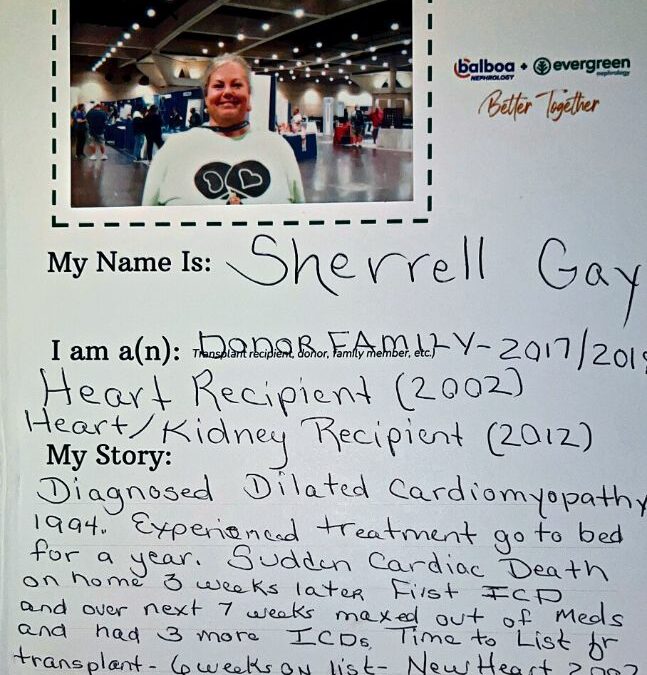 balboa + evergreen
NEPHROLOGY nephrology
Better Together
My Name Is: Sherrell Gay
I am a(n): DONOR FAMILY - 2017/2018
Transplant recipient, donor, family member, etc.)
Heart Recipient (2002)
Heart/Kidney Recipient (2012)
My Story:
Diagnosed Dilated Cardiomyopathy
1994. Experienced treatment go to bed
for a year. Sudden Cardiac Death
on home 3 weeks later First ICD
and over next 7 weeks maxed out of Meds
and had 3 more ICDs. Time to List for
transplant - 6 weeks on list - New Heart 2002